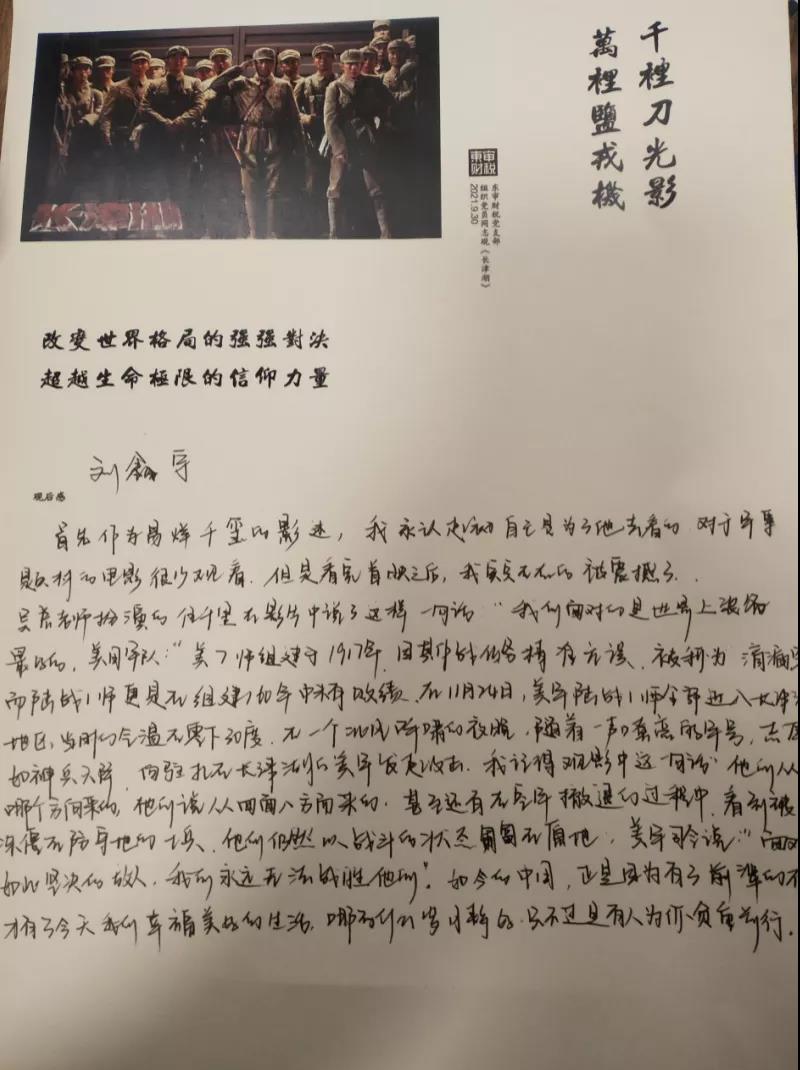 千裡刀光影
萬裡鹽戎機
東審
财税
东审财税党支部
组织党员同志观《长津湖》
2021.9.30
长津湖
改变世界格局的强强對决
超越生命極限的信仰力量
刘鑫宇
观后感
首先作为易烊千玺的影迷，我承认走 自己是为了他去看的 对于军事
题材的电影很少观看．但是看完首映之后，我实实在在的被震撼了．
吴京老师扮演的伍千里在影片中说了这样一句话"我们面对的是世界上装备
最好的，美国军队："美7师组建于1917年，因其作战任务精准无误，被称为滴漏
而陆战1师更是在组建 年中未有败绩．在11月24日，美军陆战1师全部进入长津
地区，当时的气温在零下30度．在一个北风呼啸的夜晚，随着一声 的军号，志
如神兵天降，向驻扎在长津湖的美军发起攻击．我记得观影中这一句话"他们从
哪个方向来的，他们说从四面八方向来的．甚至还有在美军撤退的过程中，看到被
冻僵在阵地的士兵，他们仍然以战斗的状态匍匐在原地，美军司令说："面对
如此坚决的敌人，我们永远无法战胜他们"．如今的中国，正是因为有了前辈的不
才有了今天我们幸福美好的生活，哪有什么岁月静好．只不过是有人为你负重前行．